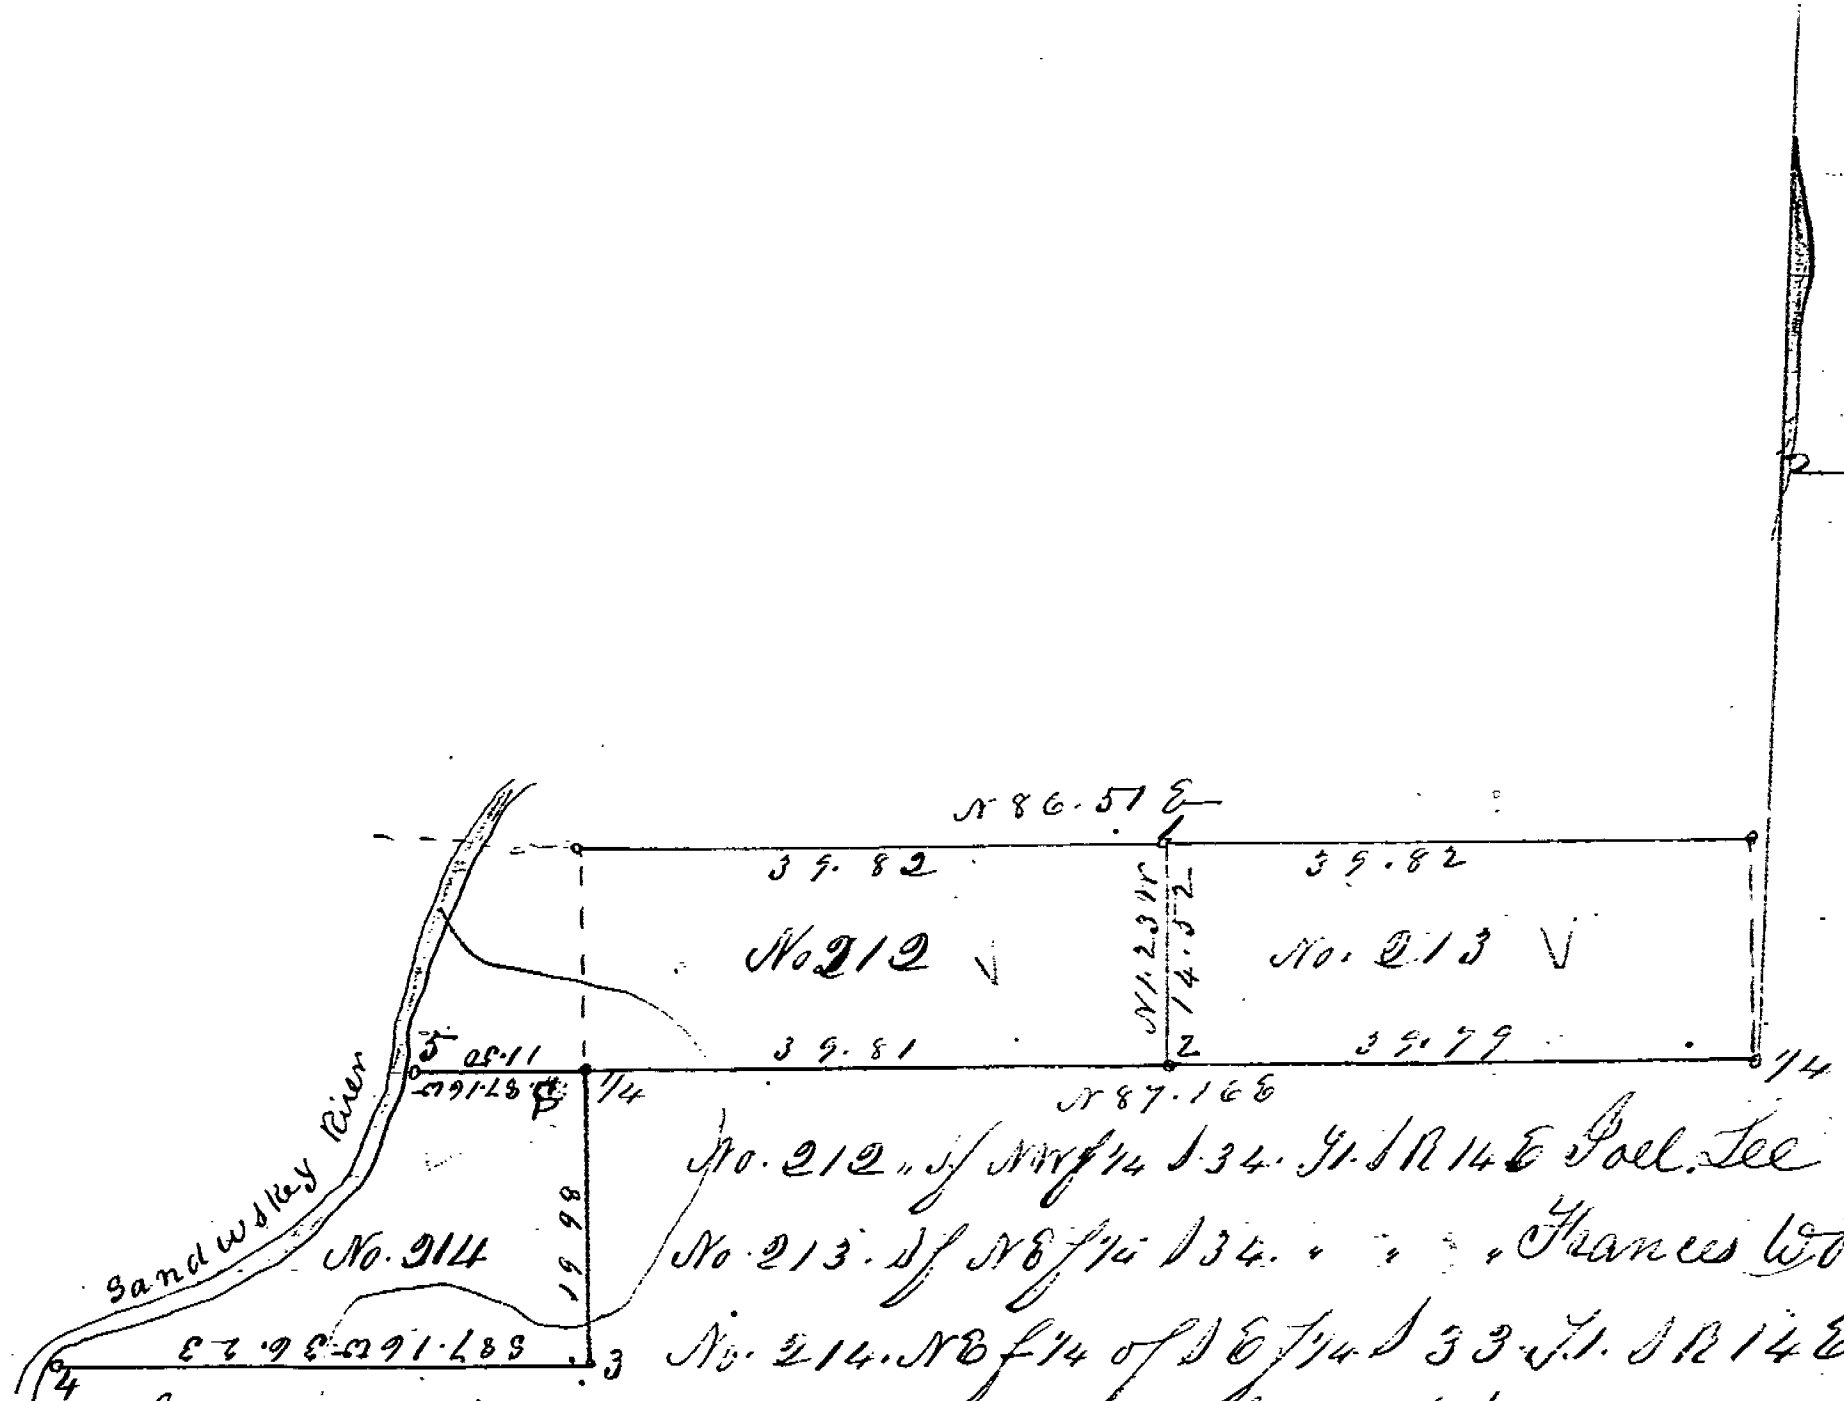 N 86.51 E
1
39.82
39.82
No 212
N 1.23 W
14.52
No. 213
5
11.50
39.81
2
39.79
S. 87.16 W
1/4
N 87.16 E
1/4
Sandwskey River
No. 214
19 98
S 87.16 W 36.23
4
3
2
No. 212 " Sf NW f 1/4 S 34. T1. S R 14 E Joel. Lee
No. 213. Sf NE f 1/4 S 34. " " " Frances Wo
No. 214. NE f 1/4 of S E f 1/4 S 33 T.1. S R 14 E